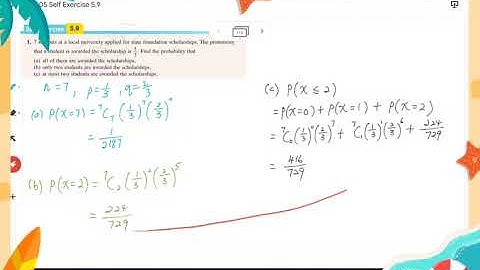 05 Self Exercise 5.9
5.9
1. 7 students at a local university applied for state foundation scholarships. The probability
that a student is awarded the scholarship is 1/3. Find the probability that
(a) all of them are awarded the scholarships.
(b) only two students are awarded the scholarships.
(c) at most two students are awarded the scholarships.
n = 7, p = 1/3, q = 2/3
(a) P(X=7) = ⁷C₇ (1/3)⁷ (2/3)⁰
= 1/2187
(b) P(X=2) = ⁷C₂ (1/3)² (2/3)⁵
= 224/729
(c) P(X ≤ 2)
= P(X=0) + P(X=1) + P(X=2)
= ⁷C₀ (1/3)⁰ (2/3)⁷ + ⁷C₁ (1/3)¹ (2/3)⁶ + 224/729
= 416/729